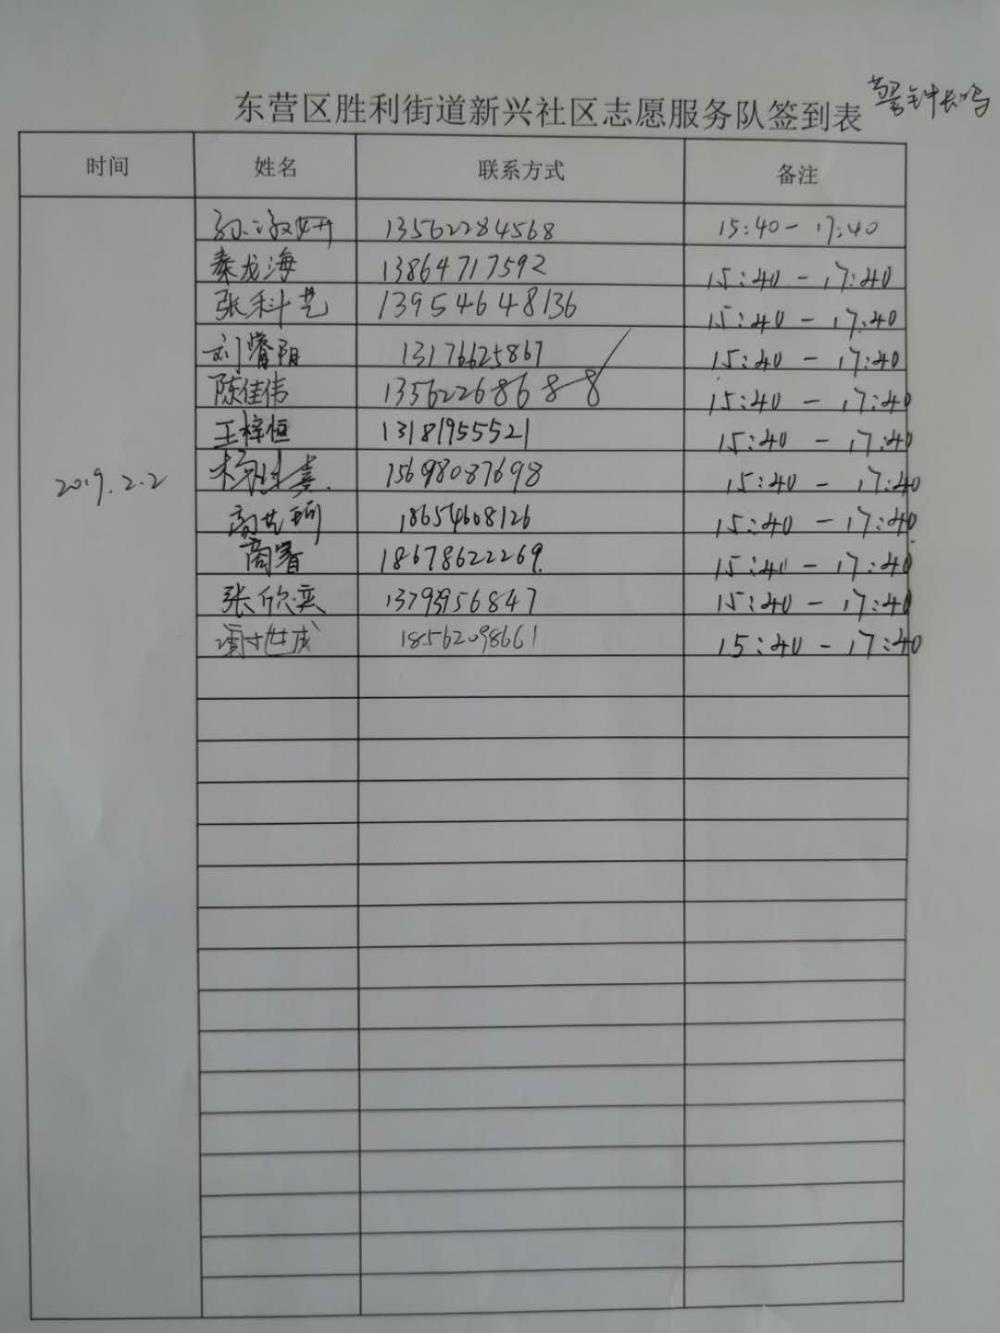 东营区胜利街道新兴社区志愿服务队签到表 警钟长鸣
时间 姓名 联系方式 备注
13562284568 15:40-17:40
秦龙海 13864717592 15:40-17:40
张科艺 13954648136 15:40-17:40
刘睿阳 13176625867 15:40-17:40
陈佳伟 13562268688 15:40-17:40
王梓恒 13181955521 15:40-17:40
2019.2.2 15698087698 15:40-17:40
高艺珂 18654608126 15:40-17:40
商睿 18678622269. 15:40-17:40
张欣奕 13793956847 15:40-17:40
18562098661 15:40-17:40